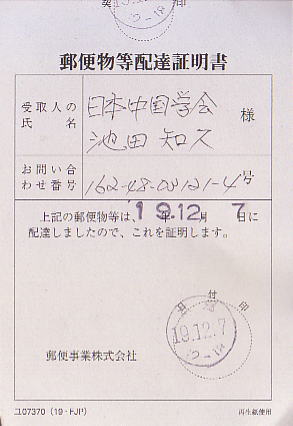 郵便物等配達証明書
受取人の氏名
日本中国学会
池田 知久 様
お問い合わせ番号
162-48-03121-4号
上記の郵便物等は、'19.12月 7日に
配達しましたので、これを証明します。
日付印
19.12.7
郵便事業株式会社
ユ07370（19・FJP）
再生紙使用